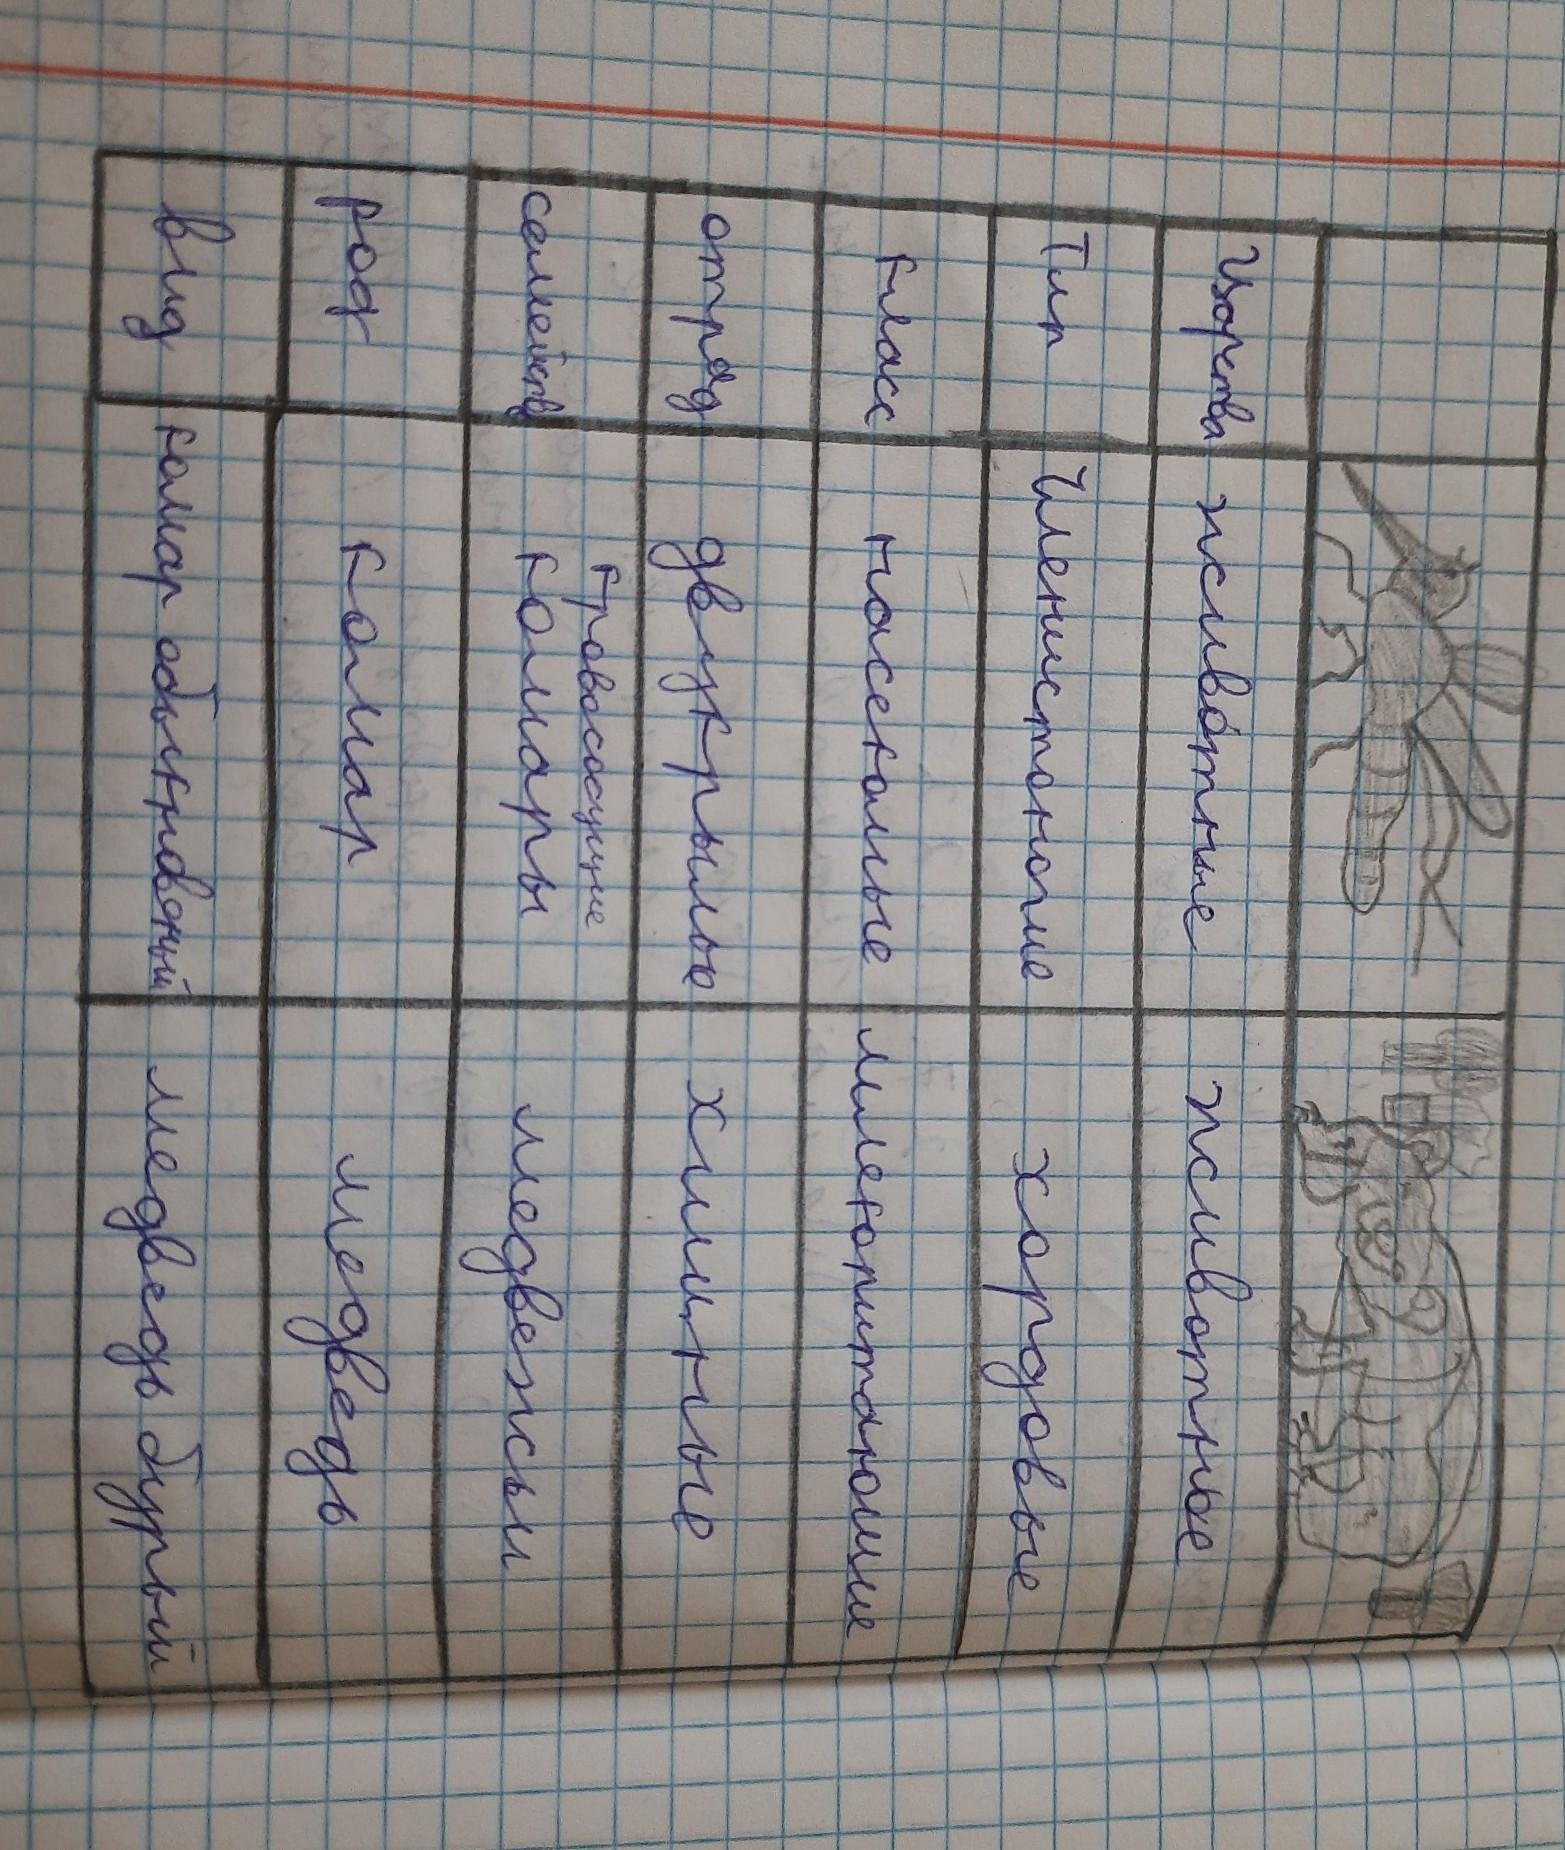 Царства животные животные
Тип Членистоногие хордовые
класс насекомые млекопитающие
отряд двукрылые хищные
семейств кровосощие комары медвежьи
род комар медведь
вид комар обыкновенный медведь бурый